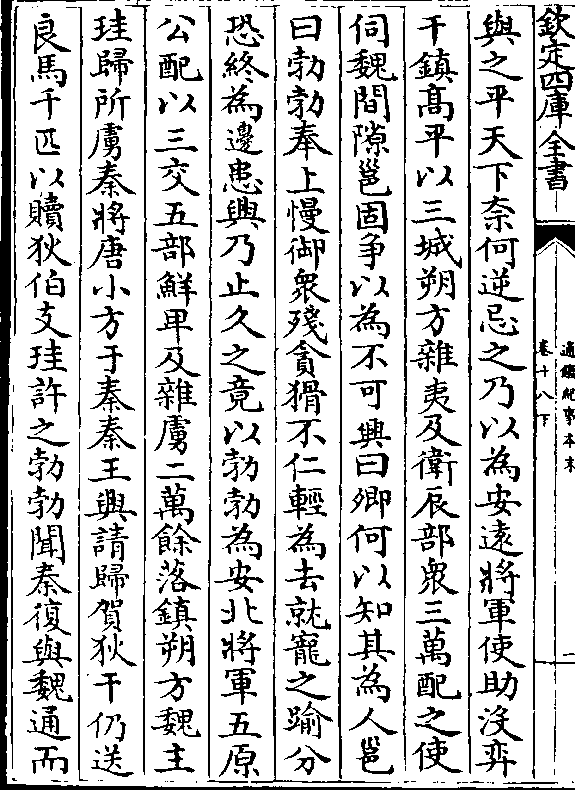 欽定四庫全書
通鑑紀事本末
卷十八下
二
與之平天下奈何逆忌之乃以為安遠將軍使助沒弈
干鎮高平以三城朔方雜夷及衛辰部衆三萬配之使
伺魏間隙邕固争以為不可興曰卿何以知其為人邕
曰勃勃奉上慢御衆殘貪猾不仁輕為去就寵之踰分
恐終為邊患興乃止久之竟以勃勃為安北將軍五原
公配以三交五部鮮卑及雜虜二萬餘落鎮朔方魏主
珪歸所虜秦將唐小方于秦秦王興請歸賀狄干仍送
良馬千匹以贖狄伯支珪許之勃勃聞秦復與魏通而